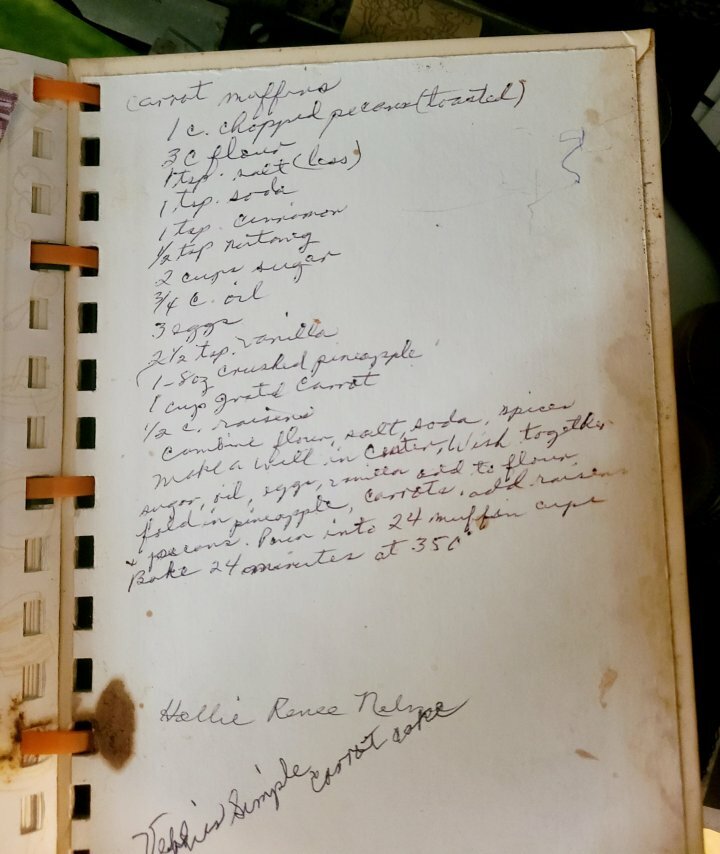 Carrot muffins
1 c. chopped pecans (toasted)
3 c flour
1 tsp. salt (less)
1 tsp. soda
1 tsp. cinnamon
1/2 tsp nutmeg
2 cups sugar
3/4 c. oil
3 eggs
2 1/2 tsp. vanilla
1-8oz crushed pineapple
1 cup gratd carrot
1/2 c. raisins
Combine flour, salt, soda, spices
make a well in center, Wish together
sugar, oil, eggs, vanilla add to flour
fold in pineapple, carrots. add raisins
+ pecans. Pour into 24 muffin cups
Bake 24 minutes at 350°
Hollie Renee
Simple carrot cake